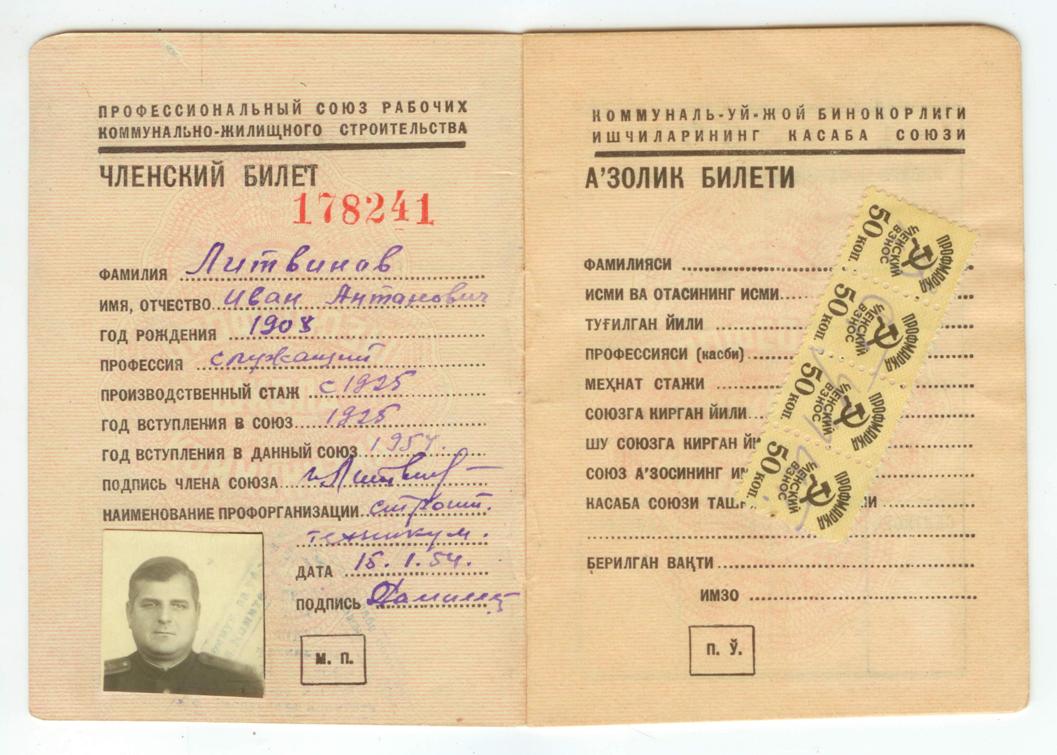 ПРОФЕССИОНАЛЬНЫЙ СОЮЗ РАБОЧИХ
КОММУНАЛЬНО-ЖИЛИЩНОГО СТРОИТЕЛЬСТВА
ЧЛЕНСКИЙ БИЛЕТ
178241
ФАМИЛИЯ Литвинов
ИМЯ, ОТЧЕСТВО Иван Антанович
ГОД РОЖДЕНИЯ 1908
ПРОФЕССИЯ служащий
ПРОИЗВОДСТВЕННЫЙ СТАЖ с 1925
ГОД ВСТУПЛЕНИЯ В СОЮЗ 1925
ГОД ВСТУПЛЕНИЯ В ДАННЫЙ СОЮЗ 1954
ПОДПИСЬ ЧЛЕНА СОЮЗА
НАИМЕНОВАНИЕ ПРОФОРГАНИЗАЦИИ строит.
техникум.
ДАТА 15.1.54.
ПОДПИСЬ
М. П.
КОММУНАЛЬ-УЙ-ЖОЙ БИНОКОРЛИГИ
ИШЧИЛАРИНИНГ КАСАБА СОЮЗИ
А'ЗОЛИК БИЛЕТИ
ФАМИЛИЯСИ
ИСМИ ВА ОТАСИНИНГ ИСМИ
ТУҒИЛГАН ЙИЛИ
ПРОФЕССИЯСИ (касби)
МЕҲНАТ СТАЖИ
СОЮЗГА КИРГАН ЙИЛИ
ШУ СОЮЗГА КИРГАН
СОЮЗ А'ЗОСИНИНГ
КАСАБА СОЮЗИ
БЕРИЛГАН ВАҚТИ
ИМЗО
П. Ў.
ПРОФМАРКА
ЧЛЕНСКИЙ
ВЗНОС
50 КОП.
ПРОФМАРКА
ЧЛЕНСКИЙ
ВЗНОС
50 КОП.
ПРОФМАРКА
ЧЛЕНСКИЙ
ВЗНОС
50 КОП.
ПРОФМАРКА
ЧЛЕНСКИЙ
ВЗНОС
50 КОП.